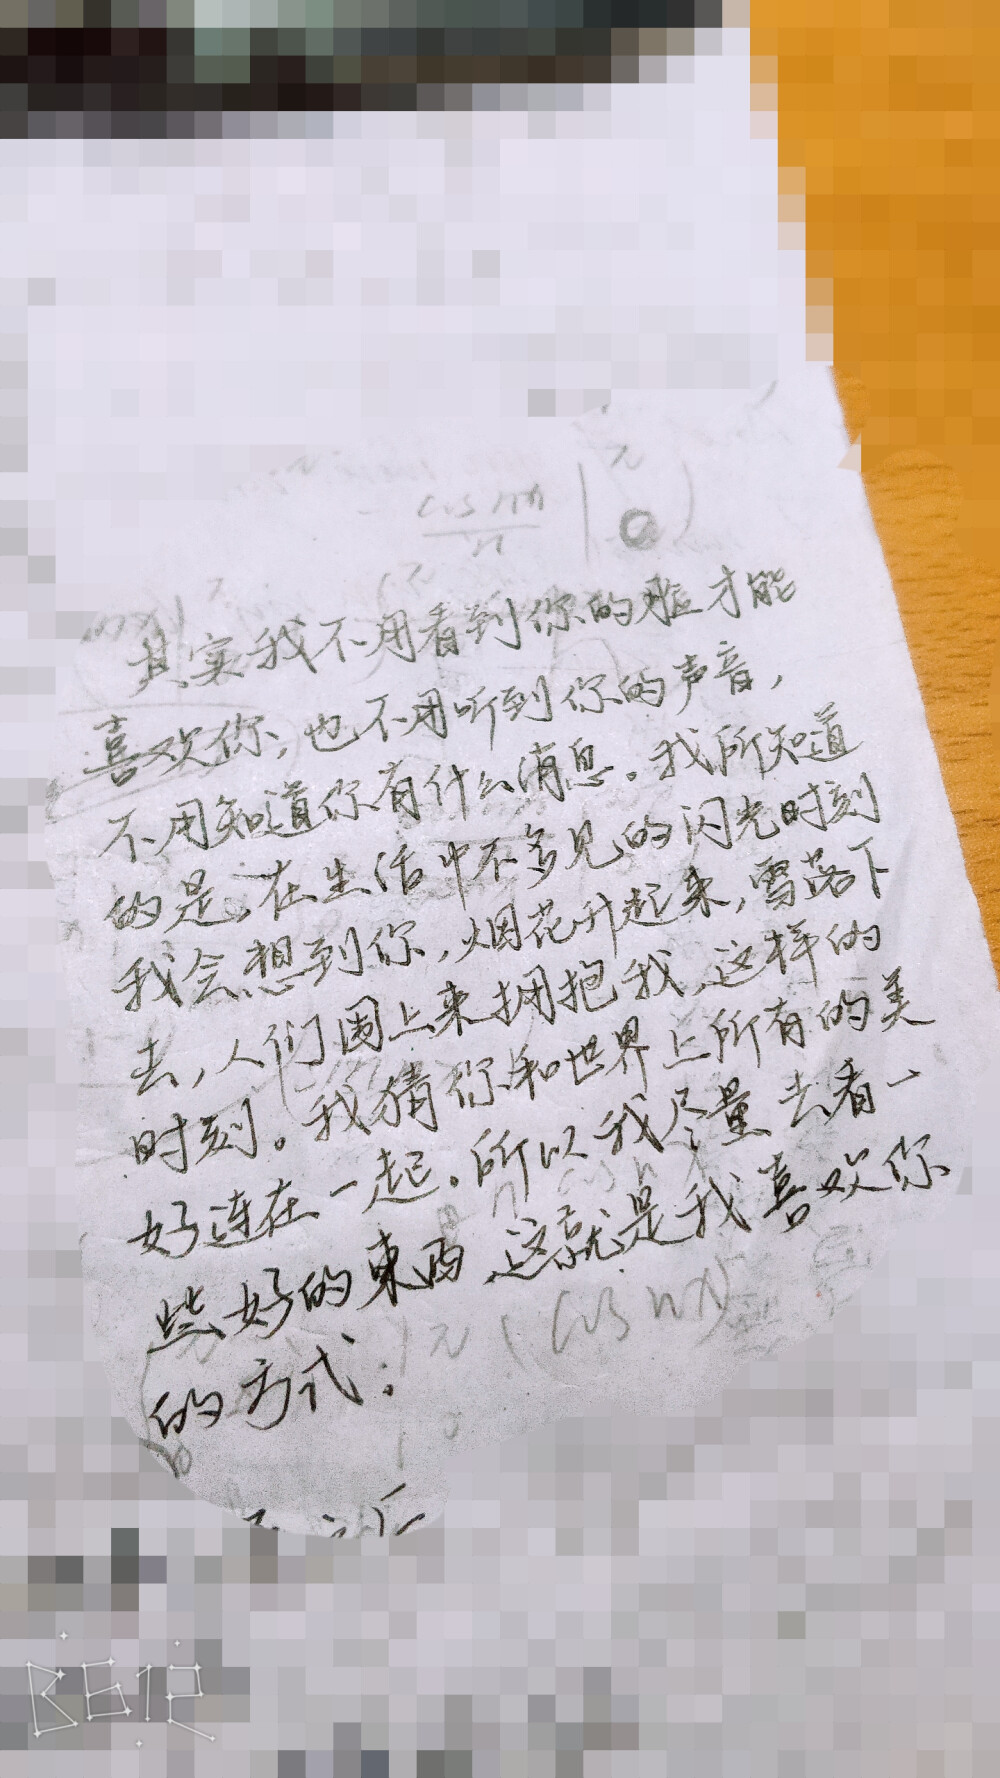 cos nx
n
π
0
其实我不用看到你的脸才能
喜欢你,也不用听到你的声音,
不用知道你有什么消息。我所知道
的是,在生活中不多见的闪光时刻
我会想到你,烟花升起来,雪落下
去,人们围上来拥抱我,这样的
时刻。我猜你和世界上所有的美
好连在一起。所以我尽量去看一
些好的東西,这就是我喜欢你
的方式.
π (cos nx)
B612